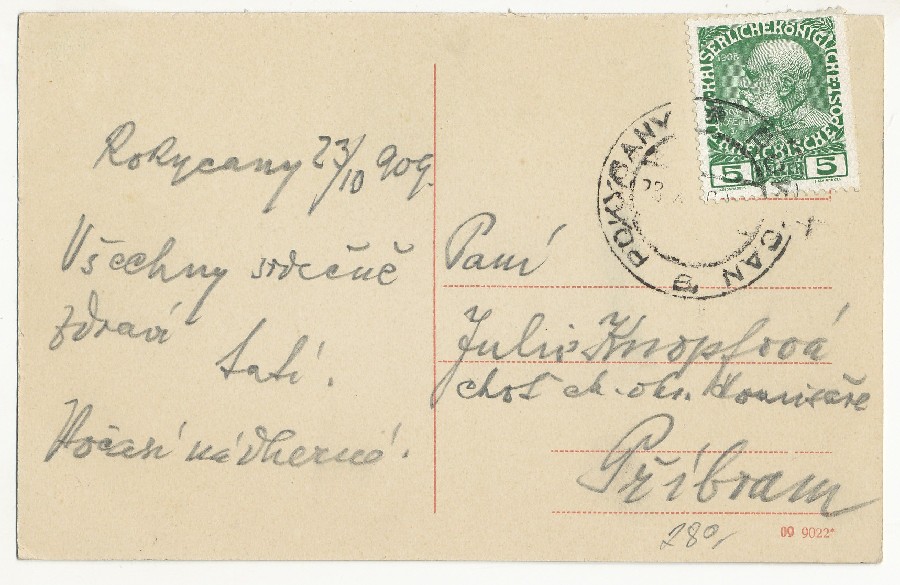 Rokycany 23/10 909.
Všechny srdečně
zdraví
tatí.
Počasí nádherné.
KAISERLICHE KÖNIGLICHE
1908
5 5
ROKYCANY
Paní
Julie Knopfová
choť ck. okr. komisaře
Příbram
280,-
09 9022*